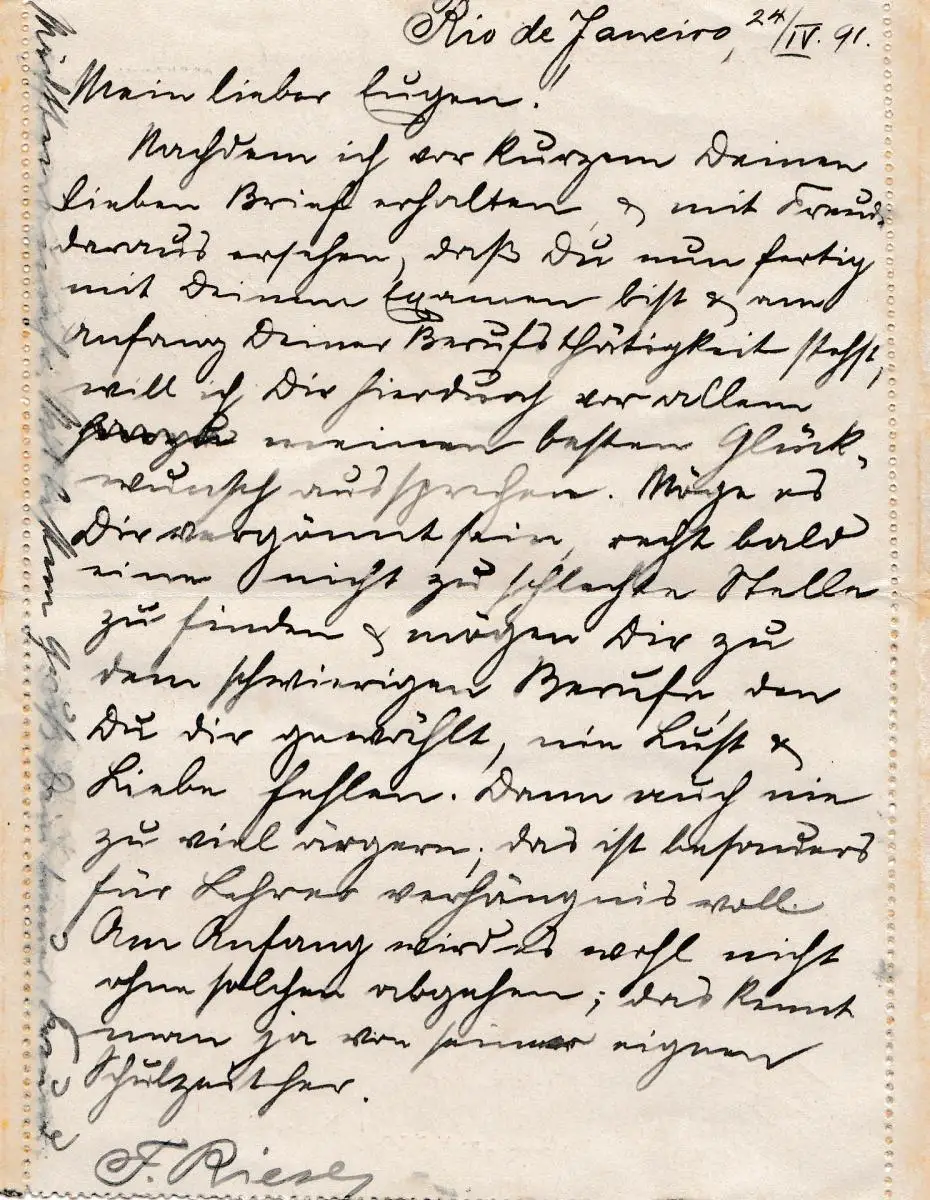 Rio de Janeiro, 24/IV. 91.
Mein lieber Eugen!
Nachdem ich vor kurzem Deinen
lieben Brief erhalten, & mit Freude
daraus ersehen, daß Du nun fertig
mit Deinem Examen bist & am
Anfang Deiner Berufsthätigkeit stehst,
will ich Dir hierdurch vor allem
meinen besten Glück-
wunsch aussprechen. Möge es
Dir vergönnt sein, recht bald
eine nicht zu schlechte Stelle
zu finden & mögen Dir zu
dem schwierigen Berufe, den
Du dir gewählt, nie Lust &
Liebe fehlen. Dann auch nie
zu viel ärgern; das ist besonders
für Lehrer verhängnisvoll.
Am Anfang wird es wohl nicht
ohne solchen abgehen; das kennt
man ja von seiner eignen
Schulzeit her.
F. Riesch